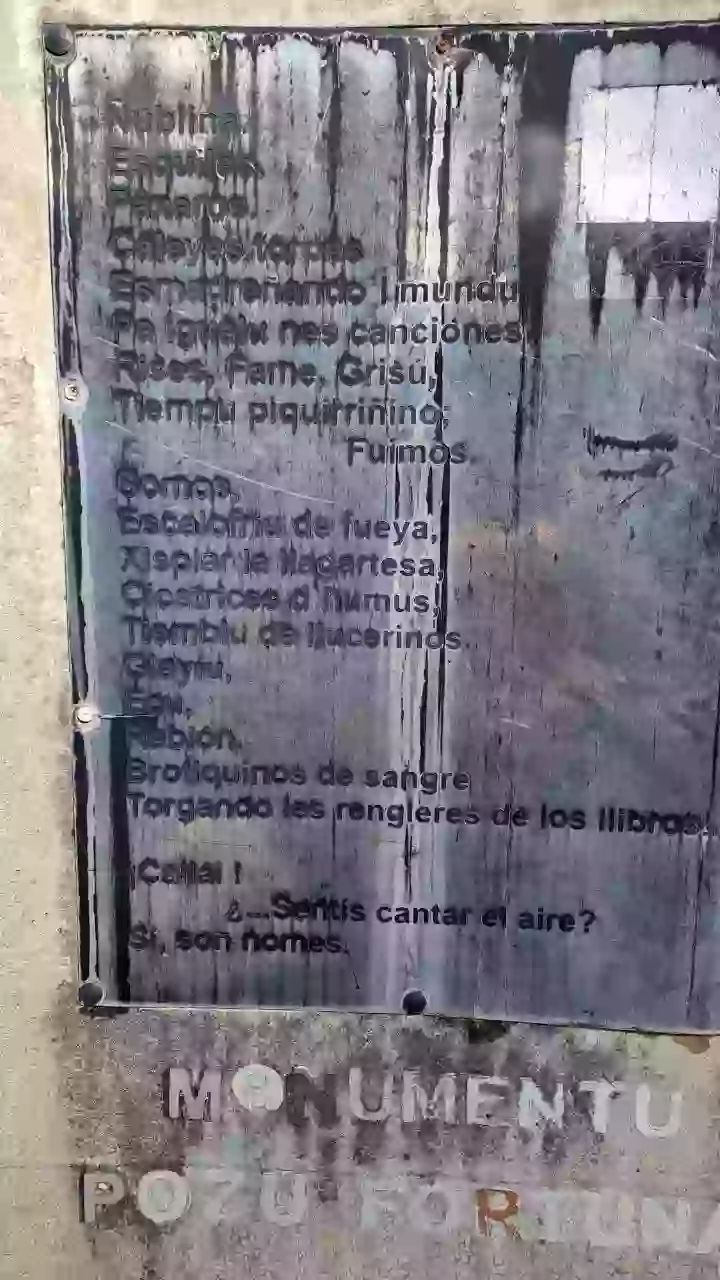 Ñublina.
Esquiles.
Páxaros.
Caleyes torpes
Esmadreñando'l mundu
Pa iguálu nes canciónes.
Rises, Fame, Grisú,
Tiempu piquirriñino;
Fuimos.
Somos,
Escalofriu de fueya,
Xisplar la llagartesa,
Cicatrices d'humus,
Tiemblu de llucerinos.
Glayíu,
Ecu,
Rebión.
Brotiquinos de sangre
Torgando les renglieres de los llibros.
¡Callái !
¿...Sentís cantar el aire?
Sí, son nomes.
MONUMENTU
POZU FORTUNA